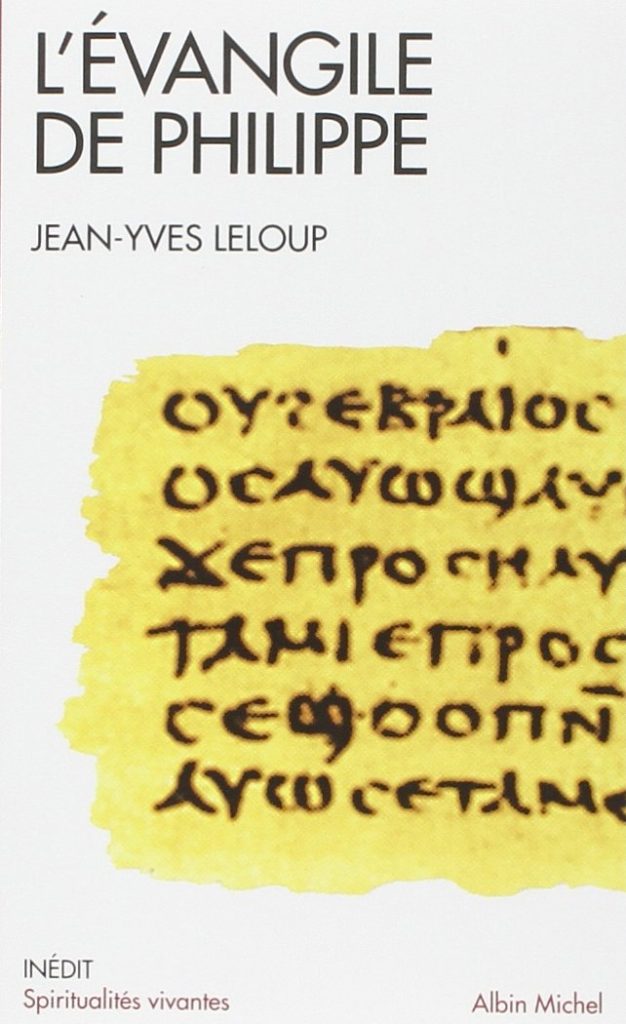 L'ÉVANGILE
DE PHILIPPE
JEAN-YVES LELOUP
ⲟⲩϩⲉⲃⲣⲁⲓⲟⲥ
ⲟⲥⲁⲩⲱϣⲁⲩ
ϫⲉⲡⲣⲟⲥⲏⲗⲩ
ⲧⲁⲙⲓⲉⲡⲣⲟⲥ
ⲥⲉϣⲟⲟⲡⲛ̄
ⲁⲩⲱⲥⲉⲧⲁⲙⲉ
INÉDIT
Spiritualités vivantes
Albin Michel